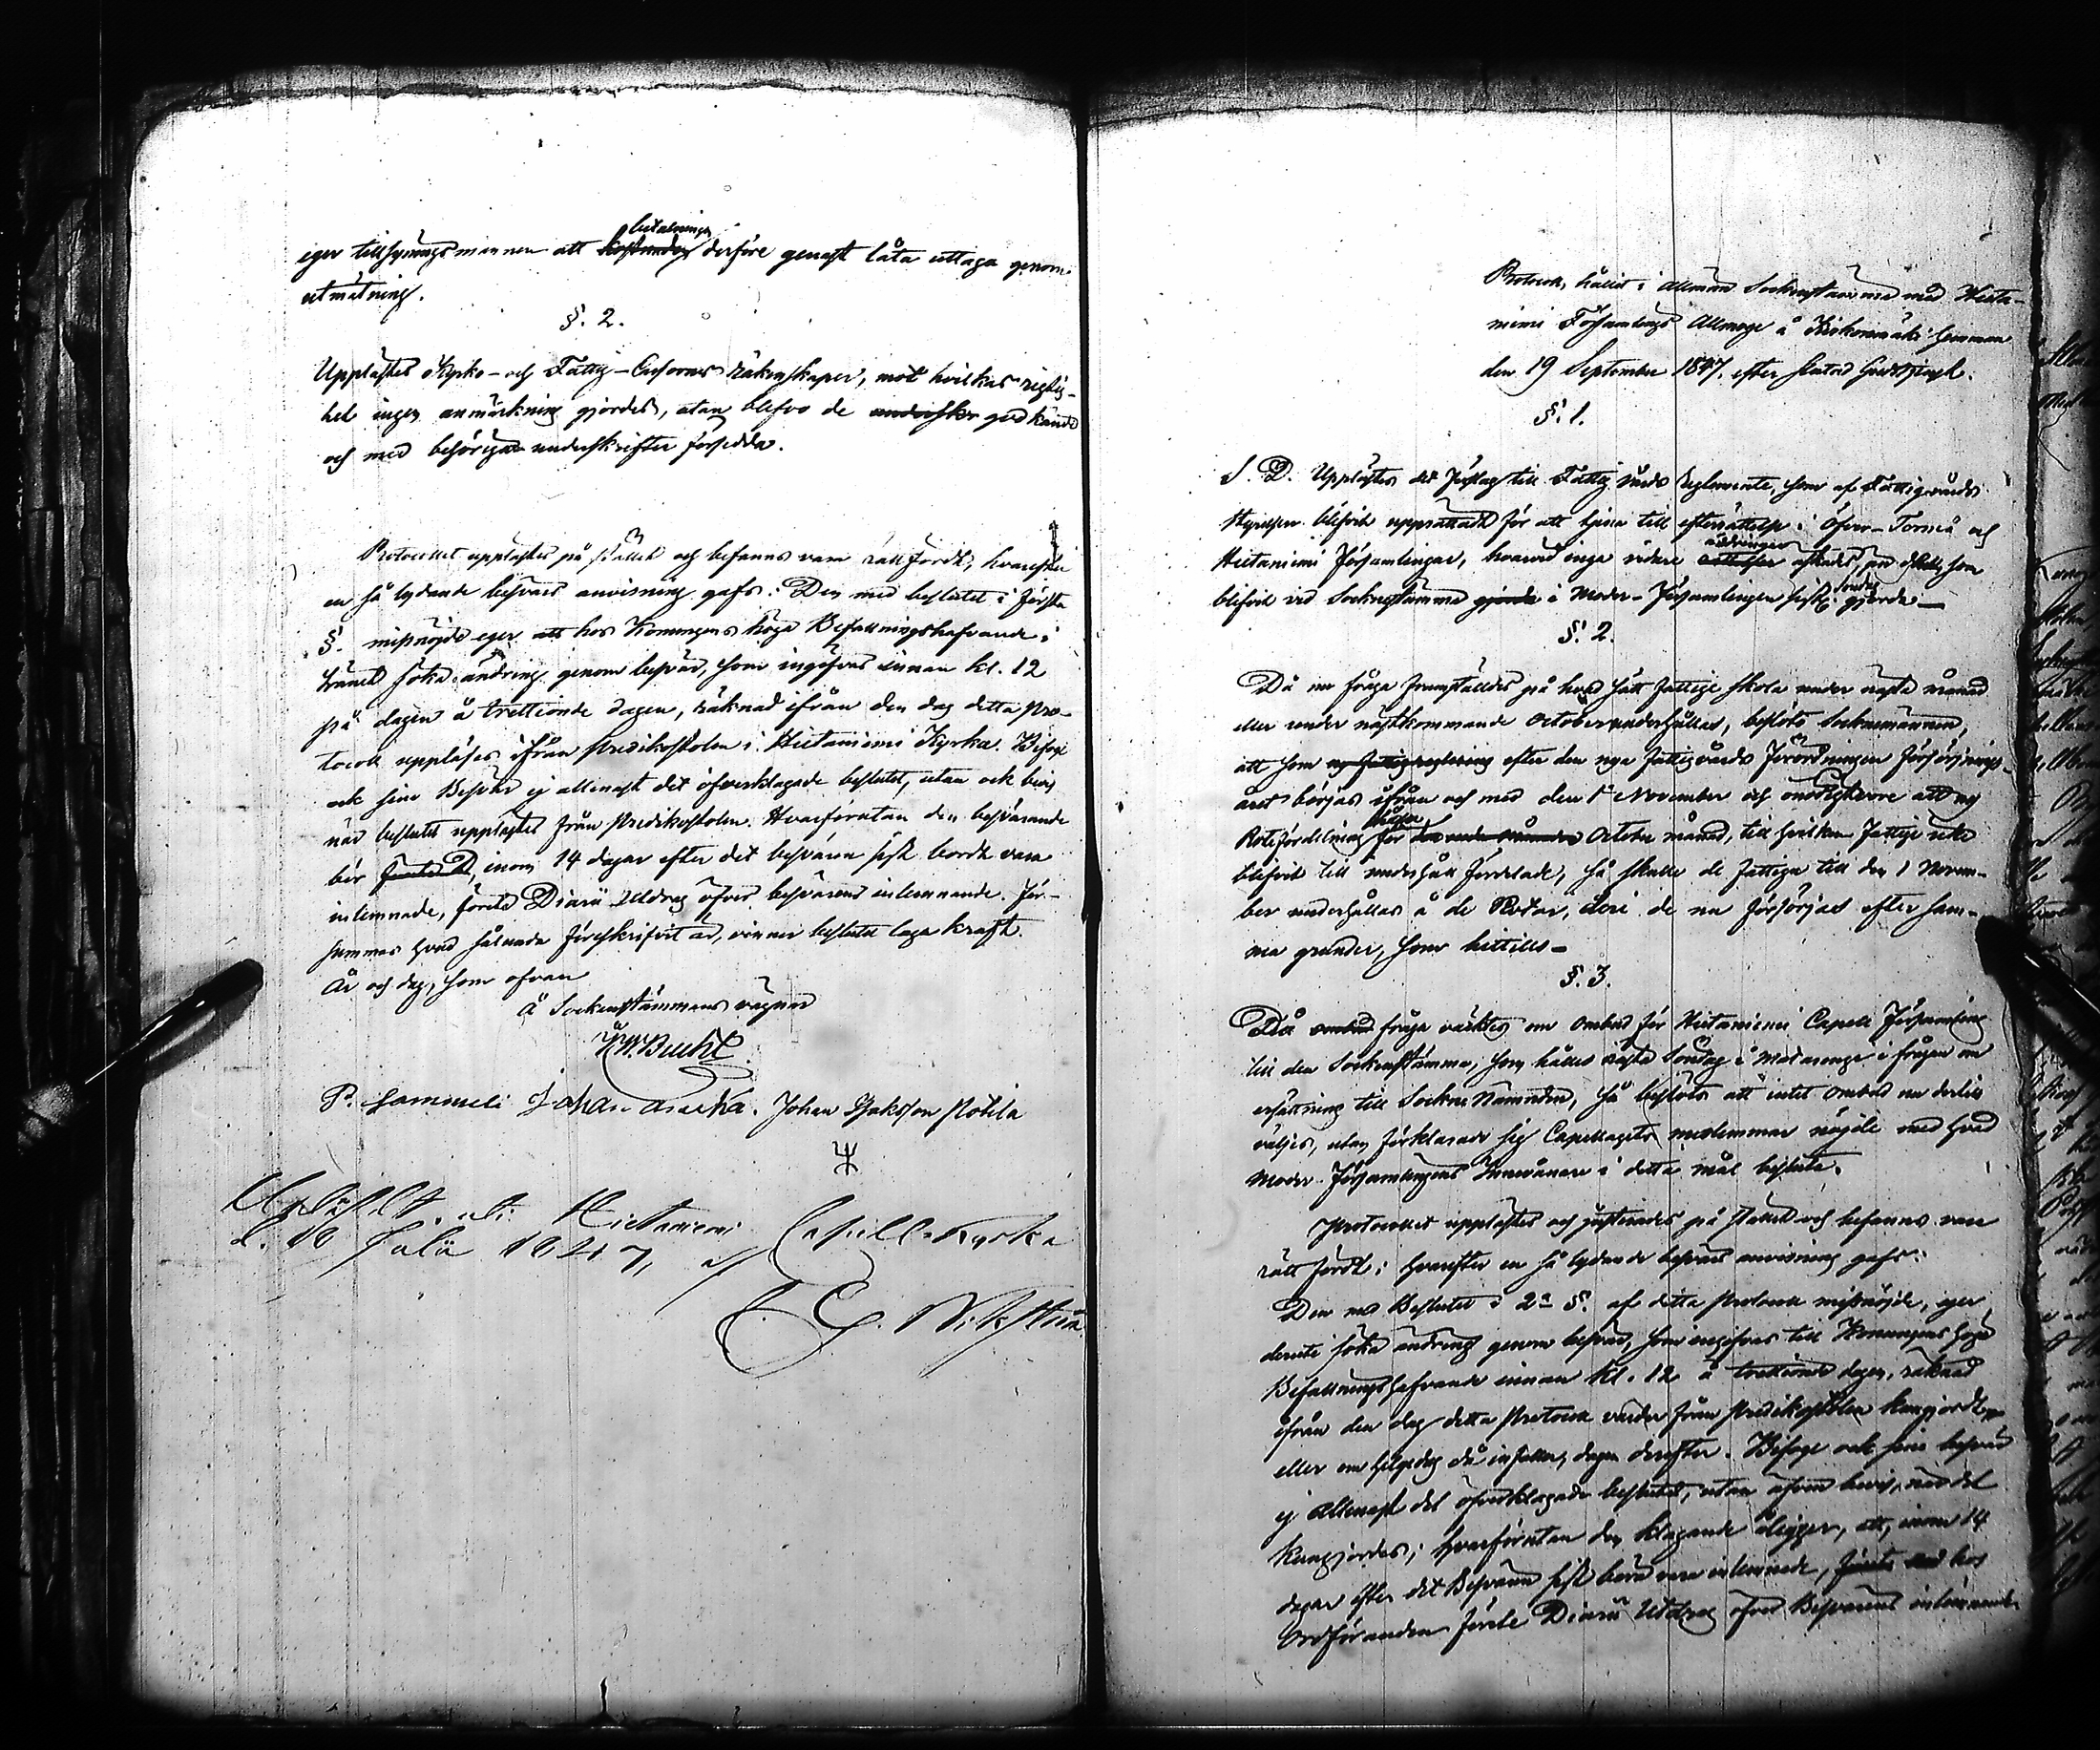 eger tillsyningsmannen att betalningen derföre genast låta uttaga genom
utmätning.
§. 2.
Upplästes Kyrko- och Fattig-Cassornas räkenskaper, mot hvilkas rigtig-
het ingen anmärkning gjordes, utan blefvo de godkände
och med behöriga underskrifter försedda.
Protocollet upplästes på stället och befanns vara rätt fördt, hvarefter
en så lydande besvärs anvisning gafs: Den med beslutet i första
§. missnöjde eger att hos Konungens höga Befallningshafvande i
Länet söka ändring genom besvär, som ingifvas innan kl. 12
på dagen å trettionde dagen, räknad ifrån den dag detta Pro-
tocoll uppläses ifrån Predikostolen i Hietaniemi Kyrka. Bifoge
ock sine Besvär ej allenast det öfverklagade beslutet, utan ock bevis
när beslutet upplästes från Predikostolen. Hvarförutan den besvärande
bör inom 14 dagar efter det besvären sist bordt vara
inlemnade, förete Diarii Utdrag öfver besvärens inlemnande. För-
summas hvad sålunda föreskrifvit är, vinner beslutet laga kraft.
År och dag, som ofvan
å Sockenstämmans vägnar
Bucht
P. Sammeli Johan Johan Isaksson Potila
Upläst uti Hietaniemi Capell-Kyrka
d. 18 Julii 1847, af
Wikström
Protocoll, hållit i allmän Sockenstämma med Hieta-
niemi Församlings Allmoge å Kirkomäki hemman
den 19 September 1847. efter slutad Gudstjenst.
§. 1.
S. D. Upplästes det förslag till Fattigvårds Reglemente, som af Fattigvårds
Styrelsen blifvit upprättadt för att tjena till efterrättelse i Öfver-Torneå och
Hietaniemi Församlingar, hvarvid inga vidare ändringar äskades, än de som
blifvit vid Sockenstämma i Moder-Församlingen sistl. Söndag gjorda—
§. 2.
Då nu fråga framställdes på hvad sätt fattige skola under nästa månad
eller under nästkommande October underhållas, beslöts Sockenmännen,
att som efter den nya Fattigvårds Förordningen Försörjnings-
året börjas ifrån och med den 1 November och att ny
Rotefördelning för October månad, till hvilken fattige icke
blifvit till underhåll fördelade, så skulle de fattiga till den 1 Novem-
ber underhållas å de Rotar, der de nu försörjas efter sam-
ma grunder, som hittills—
§. 3.
Då fråga väcktes om ombud för Hietaniemi Capell Församling
till den Sockenstämma, som hålles nästa Söndag i Matarengi i frågan om
ersättning till Sockne Nämnden, så beslöts att intet ombud nu dertill
väljes, utan förklarade sig Capellagets medlemmar nöjde med hvad
Moder-Församlingens Innevånare i detta mål besluta.
Protocollet upplästes och justerades på stället och befanns vara
rätt fördt; hvarefter en så lydande besvärs anvisning gafs:
Den med Beslutet i 2a §. af detta Protocoll missnöjde, eger
deruti söka ändring genom besvär, som ingifvas till Konungens höga
Befallningshafvande innan kl. 12 å trettionde dagen, räknad
ifrån den dag detta Protocoll varder från Predikostolen kungjordt,
eller om helgedag då infaller, dagen derefter. Bifoge ock sine besvär
ej allenast det öfverklagade beslutet, utan äfven bevis, när det
kungjordes; hvarförutan den klagande åligger, att, inom 14
dagar efter det Besvären sist bordt vara inlemnade, hos
Ordföranden förete Diarii Utdrag öfver Besvärens inlemnande